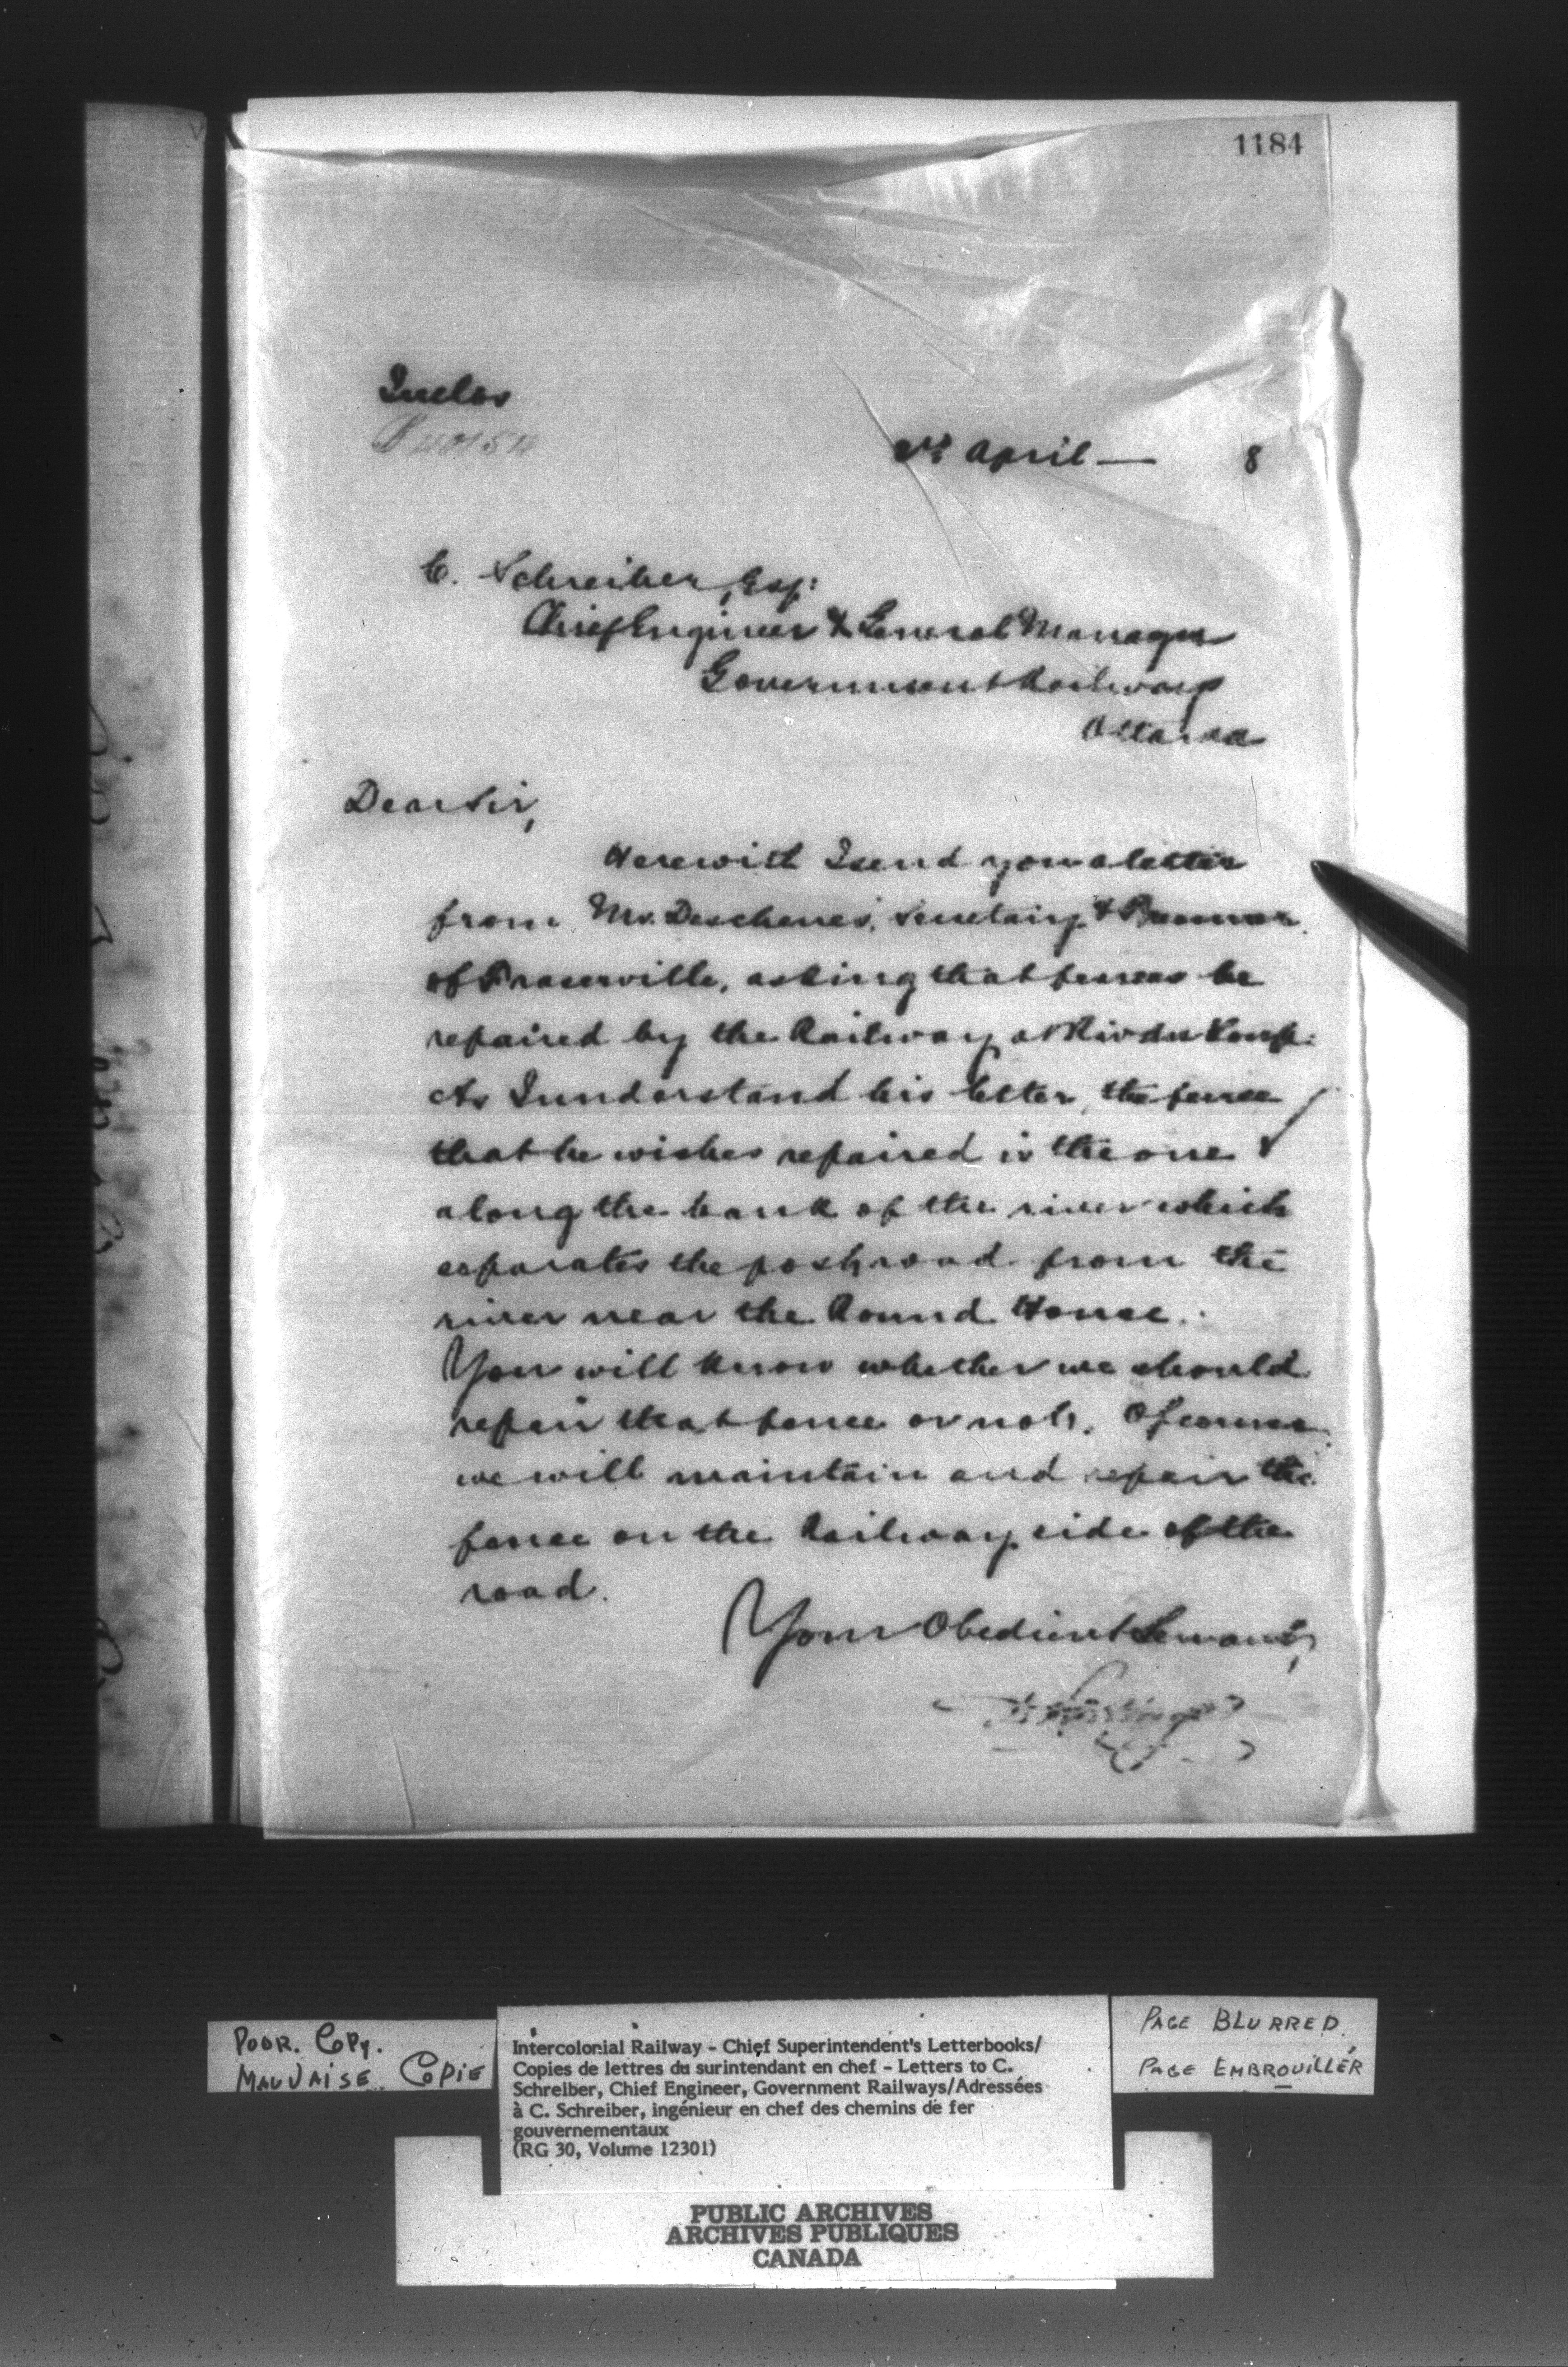 1184
Inclos
1st April — 8
C. Schreiber, Esq:
Chief Engineer & General Manager
Government Railways
Ottawa
Dear Sir,
Herewith I send you a letter
from Mr. Deschenes, Secretary &
of Fraserville, asking that fences be
repaired by the Railway at Riv du Loup.
As I understand his letter, the fence
that he wishes repaired is the one
along the bank of the river which
separates the post road from the
river near the Round House.
You will know whether we should
repair that fence or not. Of course
we will maintain and repair the
fence on the Railway side of the
road.
Your Obedient Servant,
POOR. COPY.
MAUVAISE COPIE
Intercolonial Railway - Chief Superintendent's Letterbooks/
Copies de lettres du surintendant en chef - Letters to C.
Schreiber, Chief Engineer, Government Railways/Adressées
à C. Schreiber, ingénieur en chef des chemins de fer
gouvernementaux
(RG 30, Volume 12301)
PAGE BLURRED
PAGE EMBROUILLÉR
PUBLIC ARCHIVES
ARCHIVES PUBLIQUES
CANADA